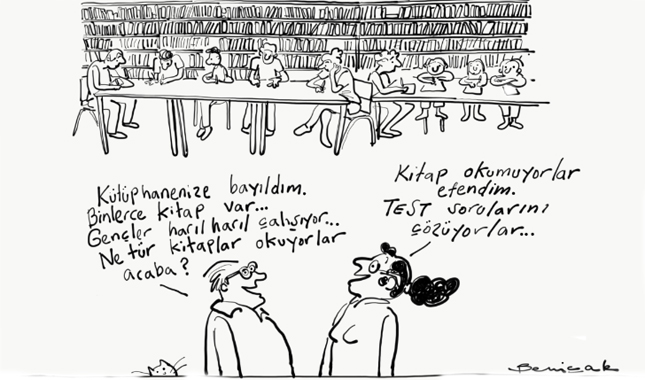 Kütüphanenize bayıldım.
Binlerce kitap var...
Gençler harıl harıl çalışıyor...
Ne tür kitaplar okuyorlar
acaba?
Kitap okumuyorlar
efendim.
TEST sorularını
çözüyorlar...
Benicak